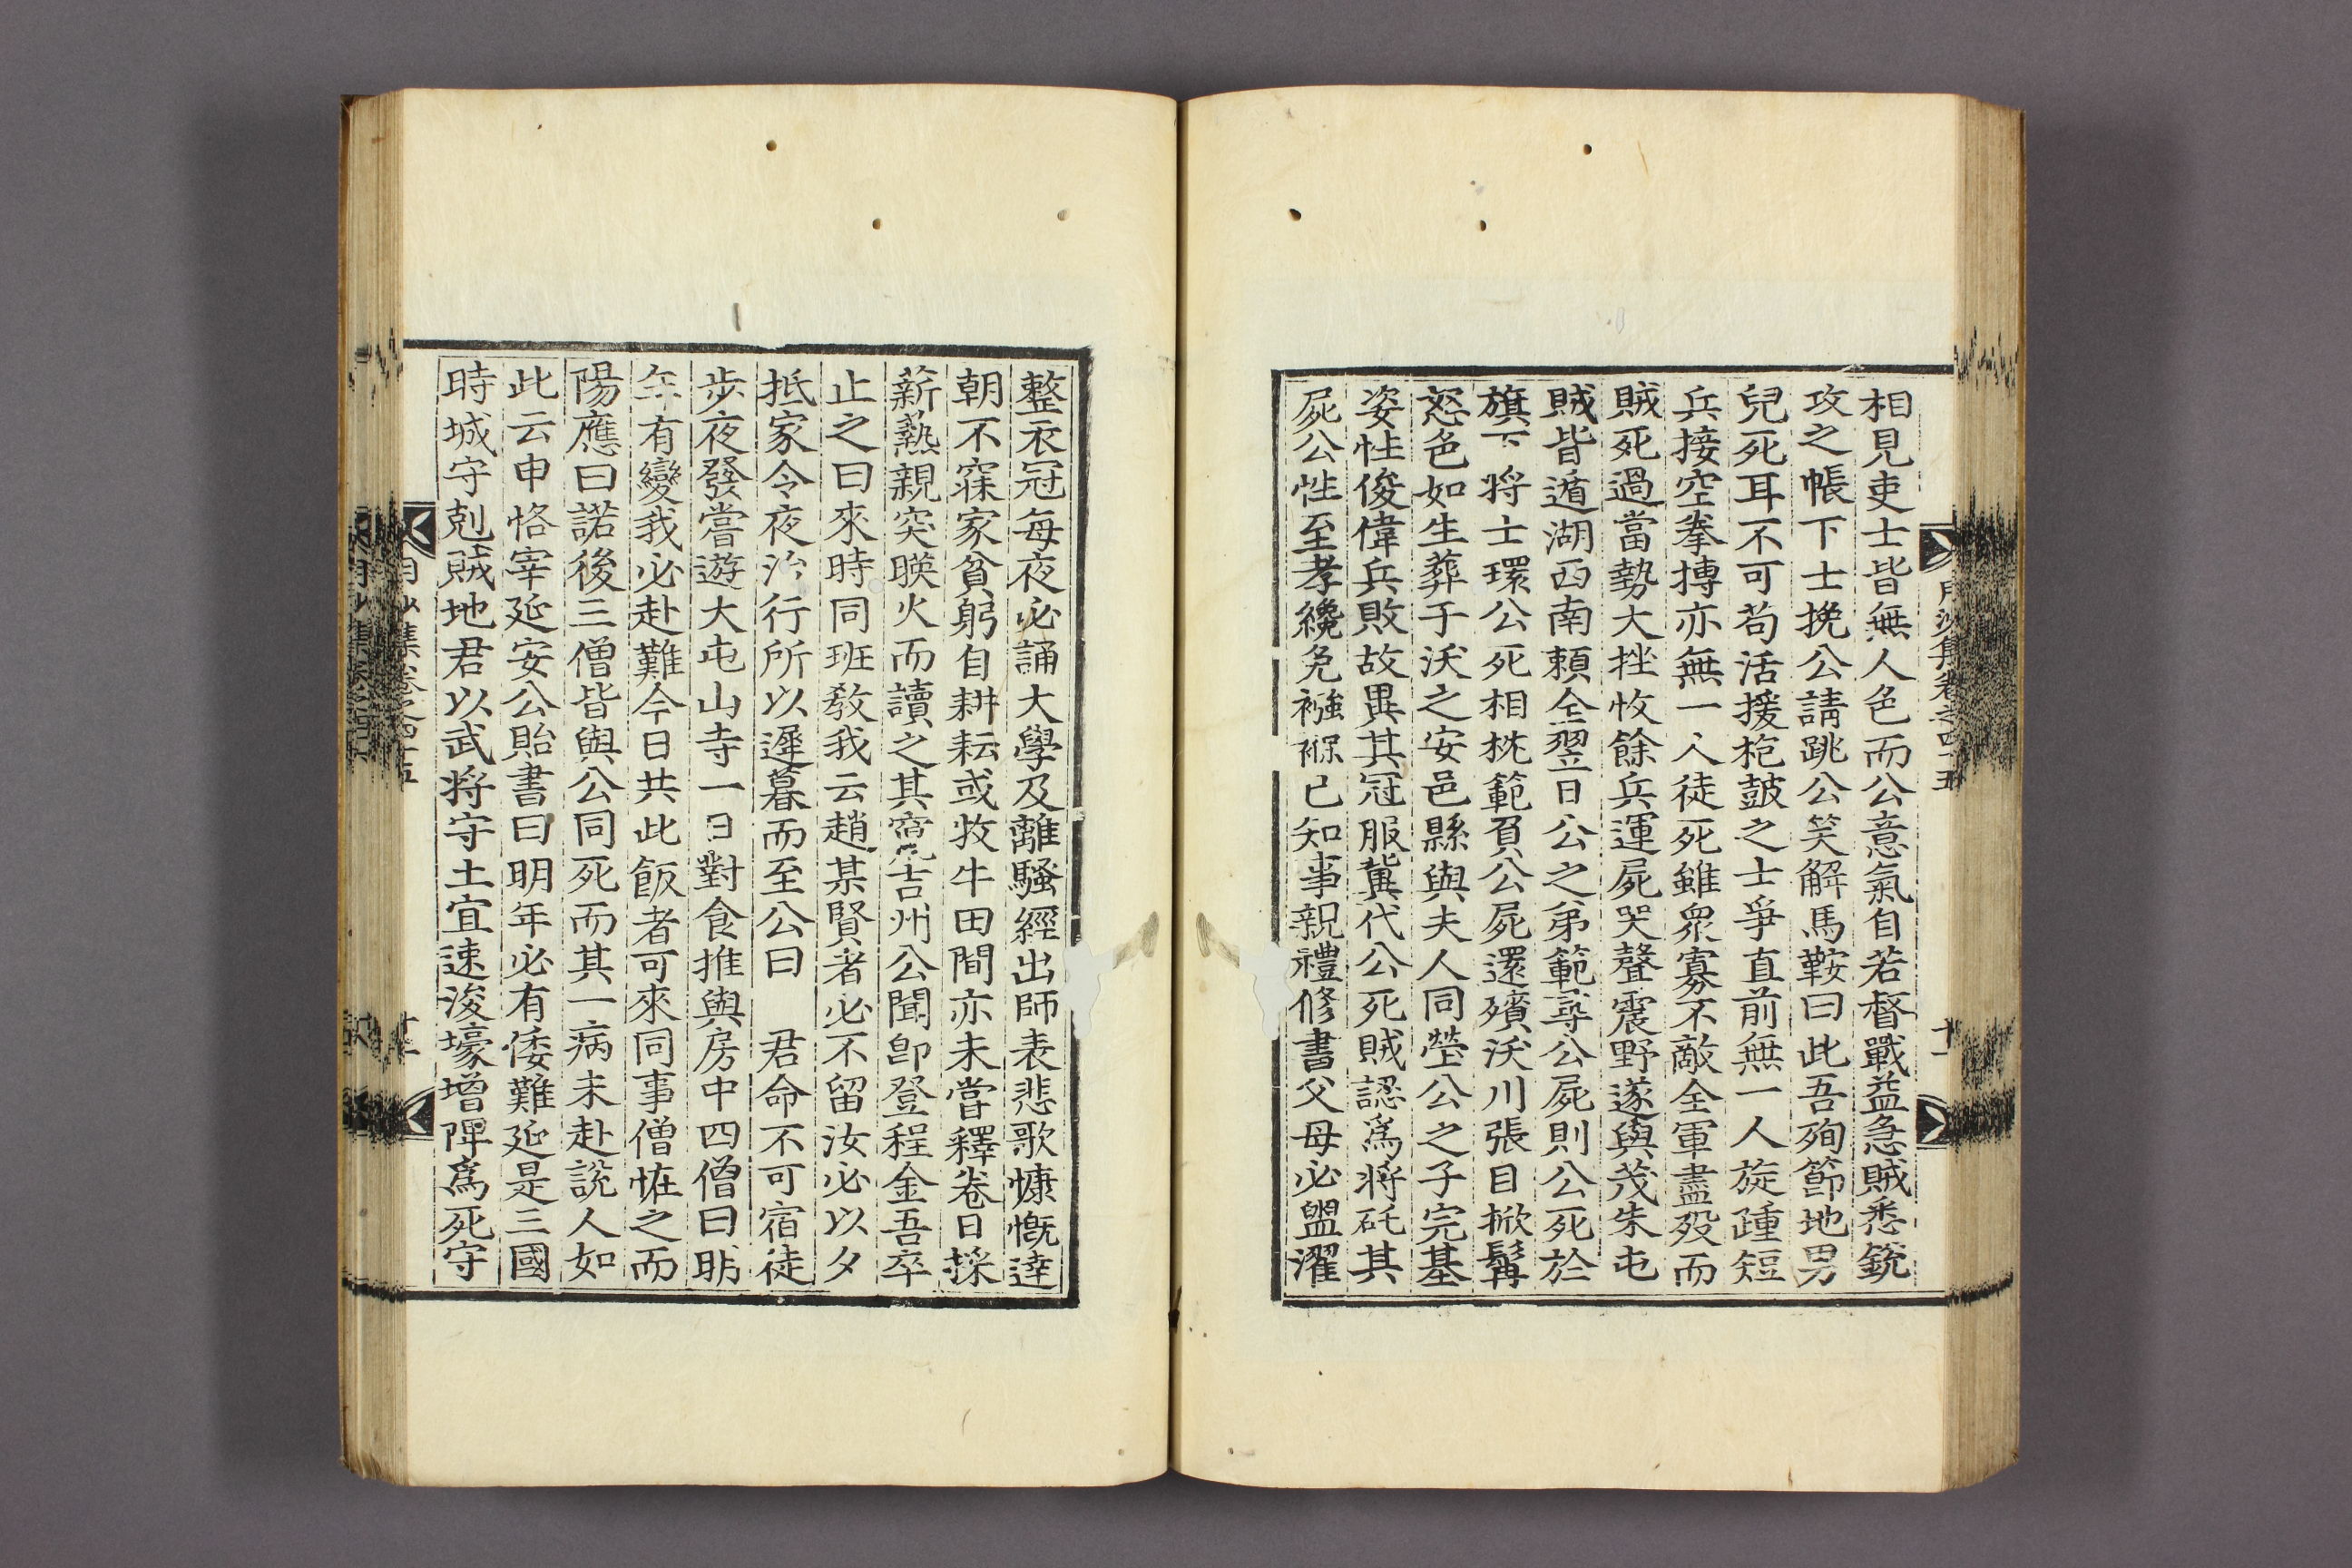 月沙集卷之四十五
十一
相見吏士皆無人色而公意氣自若督戰益急賊悉銳
攻之帳下士挽公請跳公笑解馬鞍曰此吾殉節地男
兒死耳不可苟活援枹鼓之士爭直前無一人旋踵短
兵接空拳搏亦無一人徒死雖衆寡不敵全軍盡歿而
賊死過當勢大挫收餘兵運屍哭聲震野遂與茂朱屯
賊皆遁湖西南賴全翌日公之弟範尋公屍則公死於
旗下將士環公死相枕範負公屍還殯沃川張目掀髯
怒色如生葬于沃之安邑縣與夫人同塋公之子完基
姿性俊偉兵敗故異其冠服冀代公死賊認爲將斫其
屍公性至孝纔免襁褓已知事親禮修書父母必盥濯
整衣冠每夜必誦大學及離騷經出師表悲歌慷慨達
朝不寐家貧躬自耕耘或牧牛田間亦未嘗釋卷日採
薪爇親突暎火而讀之其竄吉州公聞卽登程金吾卒
止之曰來時同班敎我云趙某賢者必不留汝必以夕
抵家令夜治行所以遲暮而至公曰　君命不可宿徒
步夜發嘗遊大屯山寺一日對食推與房中四僧曰明
年有變我必赴難今日共此飯者可來同事僧恠之而
陽應曰諾後三僧皆與公同死而其一病未赴說人如
此云申恪宰延安公貽書曰明年必有倭難延是三國
時城守剋賊地君以武將守土宜速浚壕增陴爲死守
集卷之四十五